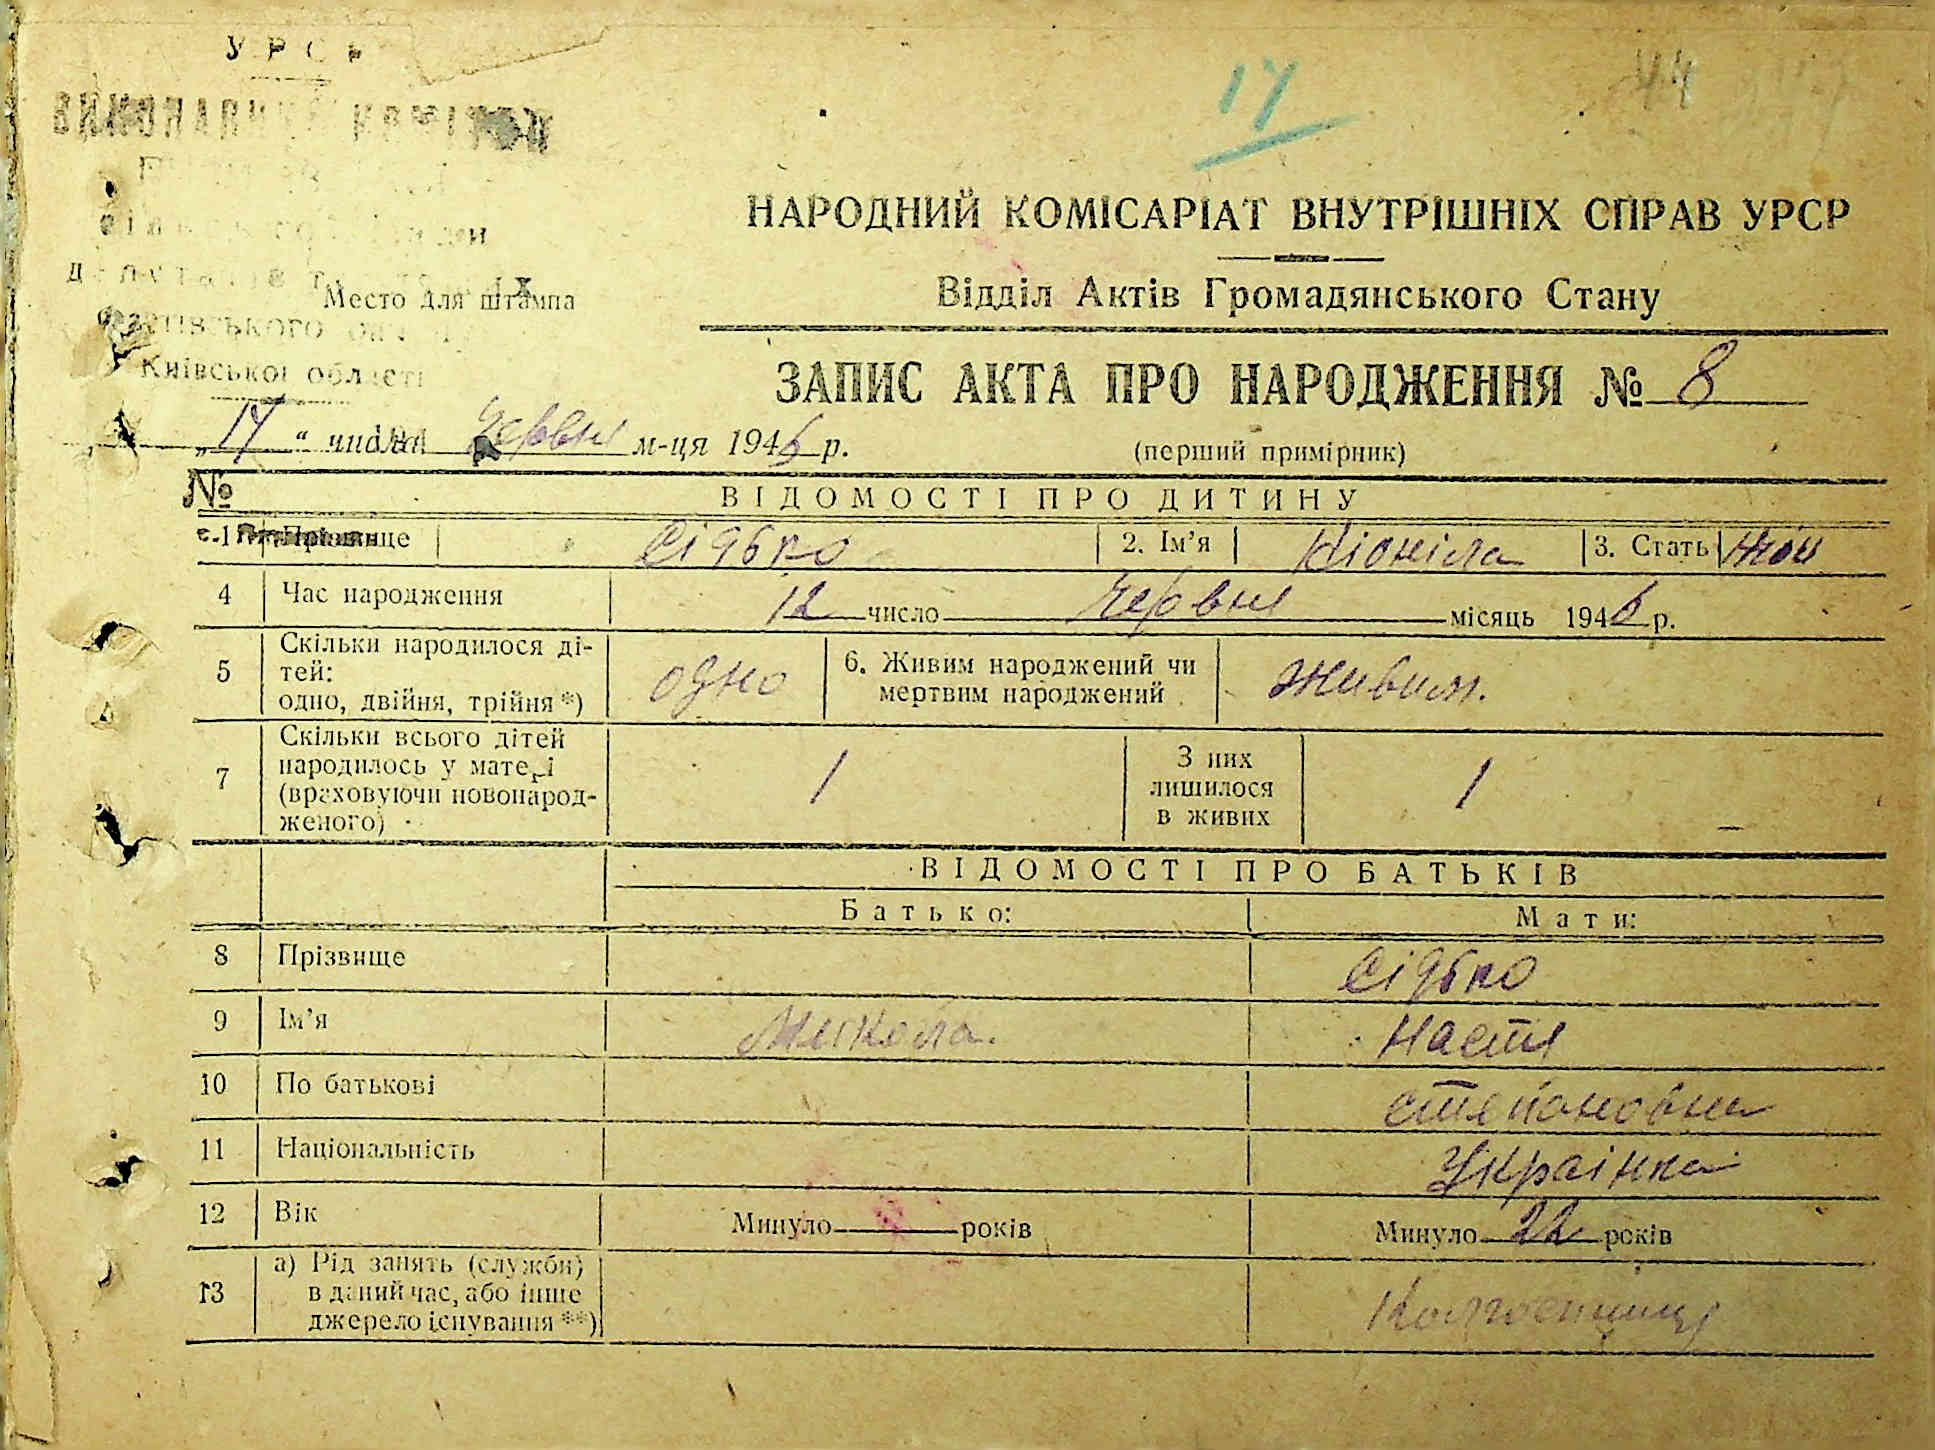 УРСР
ВИКОНАВЧИЙ КОМІТЕТ
Место для штампа
Київської області
17
44
НАРОДНИЙ КОМІСАРІАТ ВНУТРІШНІХ СПРАВ УРСР
Відділ Актів Громадянського Стану
ЗАПИС АКТА ПРО НАРОДЖЕННЯ № 8
„17“ числа Червня м-ця 1946 р.
(перший примірник)
№
ВІДОМОСТІ ПРО ДИТИНУ
1 Прізвище Сідько 2. Ім'яНіоніла 3. Стать Жін
4 Час народження 12 число Червня місяць 1946 р.
5 Скільки народилося ді-
тей:
одно, двійня, трійня *) одно 6. Живим народжений чи
мертвим народжений живим.
7 Скільки всього дітей
народилось у матері
(враховуючи новонарод-
женого) 1 З них
лишилося
в живих 1
ВІДОМОСТІ ПРО БАТЬКІВ
Батько: Мати:
8 Прізвище Сідько
9 Ім'я Микола. Настя
10 По батькові Степановна
11 Національність Українка
12 Вік Минуло років Минуло 22 років
13 а) Рід занять (служби)
в даний час, або інше
джерело існування **) Колгоспниця